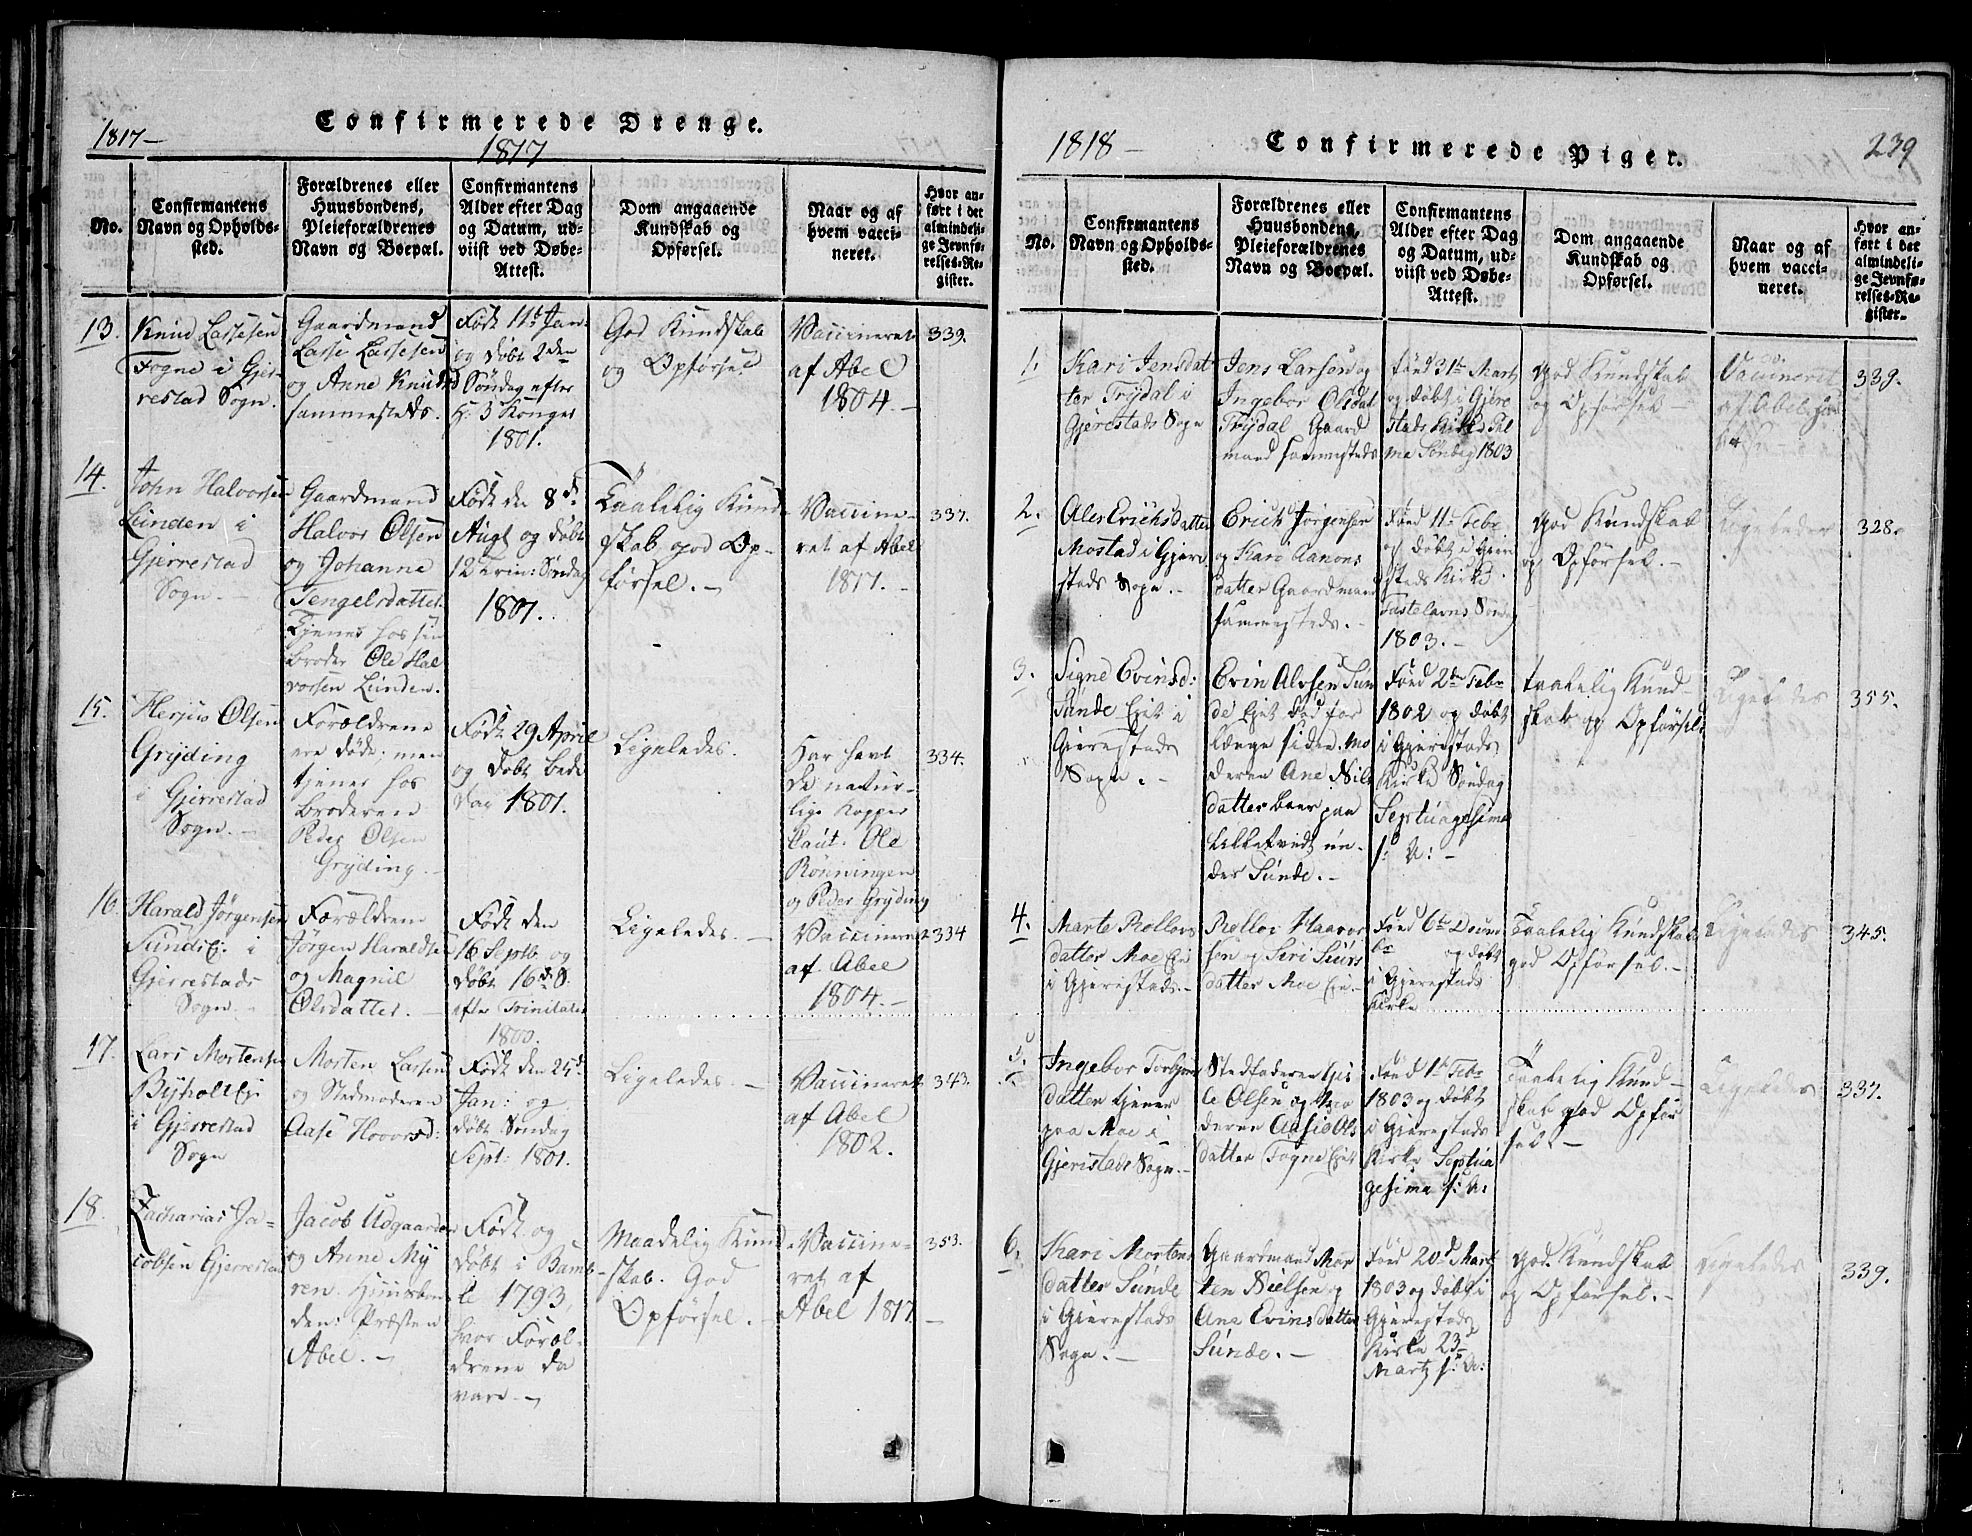 1817-
Confirmerede Drenge.
1817
No.
Confirmantens
Navn og Opholds-
sted.
Forældrenes eller
Huusbondens,
Pleieforældrenes
Navn og Boepæl.
Confirmantens
Alder efter Dag
og Datum, ud-
viist ved Døbe-
Attest.
Dom angaaende
Kundskab og
Opførsel.
Naar og af
hvem vacci-
neret.
Hvor an-
ført i det
almindeli-
ge Jevnfø-
relses-Re-
gister.
13.
Knud Lassesen
Fogne i Gjer-
restad Sogn.
Gaardmand
Lasse Lassesen
og Anne Knudsd
sammesteds.
Født 11te Jan:
og døbt 2den
Søndag efter
H: 3 Konger
1801.
God Kundskab
og Opførsel
Vaccineret
af Abel
1804.-
339.
14.
John Halvorsen
Lunden i
Gjerrestad
Sogn.-
Gaardmand
Halvor Olsen
og Johanne
Tengelsdatter.
Tjener hos sin
Broder Ole Hal
vorsen Lunden.
Født den 8de
Augt og døbt
12 Trin: Søndag
1801.
Taalelig Kund-
skab, god Op-
førsel.-
Vaccine-
ret af Abel
1817.-
337.
15.
Herjus Olsen
Gryding
i Gjerrestad
Sogn.-
Forældrene
ere døde; men
tjener hos
Broderen
Peder Olsen
Gryding.-
Født 29 April
og døbt Bede
dag 1801.
Ligeledes.
Har havt
de natur-
lige Kopper
Ole
Rønningen
og Peder Gryding
334.
16.
Harald Jørgensen
Sunde Ej: i
Gjerrestads
Sogn.-
Forældrene
Jørgen Haralds
og Magnil
Olsdatter.-
Født den
16 Septb og
døbt 16de S.
efter Trinitatis
1800.
Ligeledes.-
Vaccineret
af Abel
1804.-
334
17.
Lars Mortensen
Byholt Ej:
i Gjerrestad
Sogn
Morten Lassen
og Stedmoderen
Aase Hoversd:
Født den 25de
Jan: og
døbt Søndag
Sept: 1801.
Ligeledes.-
Vaccineret
af Abel
1802.
343.
18.
Zacharias Ja-
cobsen Gjerrestad
Jacob Udgaarden
og Anne My
ren. Huusbon
den: Præsten
Abel.-
Født og
døbt i Bamb-
le 1793,
hvor Foræl-
drene da
vare.-
Maadelig Kund-
skab. God
Opførsel.-
Vaccine-
ret af
Abel 1817.-
353.
1818-
Confirmerede Piger.
239
No.
Confirmantens
Navn og Opholds-
sted.
Forældrenes eller
Huusbondens,
Pleieforældrenes
Navn og Boepæl.
Confirmantens
Alder efter Dag
og Datum, ud-
viist ved Døbe-
Attest.
Dom angaaende
Kundskab og
Opførsel.
Naar og af
hvem vacci-
neret.
Hvor an-
ført i det
almindeli-
ge Jevnfø-
relses-Re-
gister.
1.
Kari Jensdat
ter Trydal i
Gjerestads Sogn
Jens Larsen og
Ingebor Olsdat
Trydal Gaard
mand sammesteds
Fød 31te Marts
og døbt i Gjere
stads Kirke Pal
me Søndag 1803
god Kundskab
og Opførsel-
Vaccineret
af Abel
339.
2.
Ales Erichsdatter
Mostad i Gjere
stads Sogn.-
Erich Jørgensen
og Kari Aanons
datter Gaardmand
sammesteds.-
Fød 11te Febr
og døbt i Gjere
stads Kirke
Fastelavns Sønd
1803.-
god Kundskab
og Opførsel.-
Ligeledes
328.
3.
Signe Evinsd:
Sunde Ejet i
Gjerestads
Sogn.-
Evin Alvsen Sun
de Ejet død for
længe siden. Mo
deren Ane Nils
datter boer paa
Lilletvedt un-
der Sunde.-
Fød 2den Febr
1802 og døbt
i Gjerestads
Kirke Søndag
Septuagesima
s: A:-
taalelig Kund-
skab og Opførsel
Ligeledes
355.
4.
Marte Rollovs
datter Moe Eje
i Gjerestads.-
Rollov Haavor
sen og Siri Siurs
datter Moe Eje.-
Fød 6te Decem
br og døbt
i Gjerestads
Kirke
Taalelig Kundskab
god Opførsel.-
Ligeledes
345.
5.
Ingebor Torbjøns
datter tjener
paa Moe i
Gjerestads Sogn.-
Stedfaderen
Olsen og Mo
deren Aasie Ols
datter Fogne Ejet
Fød 1te Febr
1803 og døbt
i Gjerestads
Kirke Septua
gesima s: A:
Taalelig Kund-
skab god Opfør
sel.-
Ligeledes
337.
6.
Kari Mortens
datter Sunde
i Gjerestads
Sogn.-
Gaardmand Mor
ten Nielsen og
Ane Evinsdatter
Sunde.-
Fød 20de Marts
1803 og døbt i
Gjerestads
Kirke 23de
Marts s: A:
god Kundskab
og Opførsel.-
Ligeledes
339.